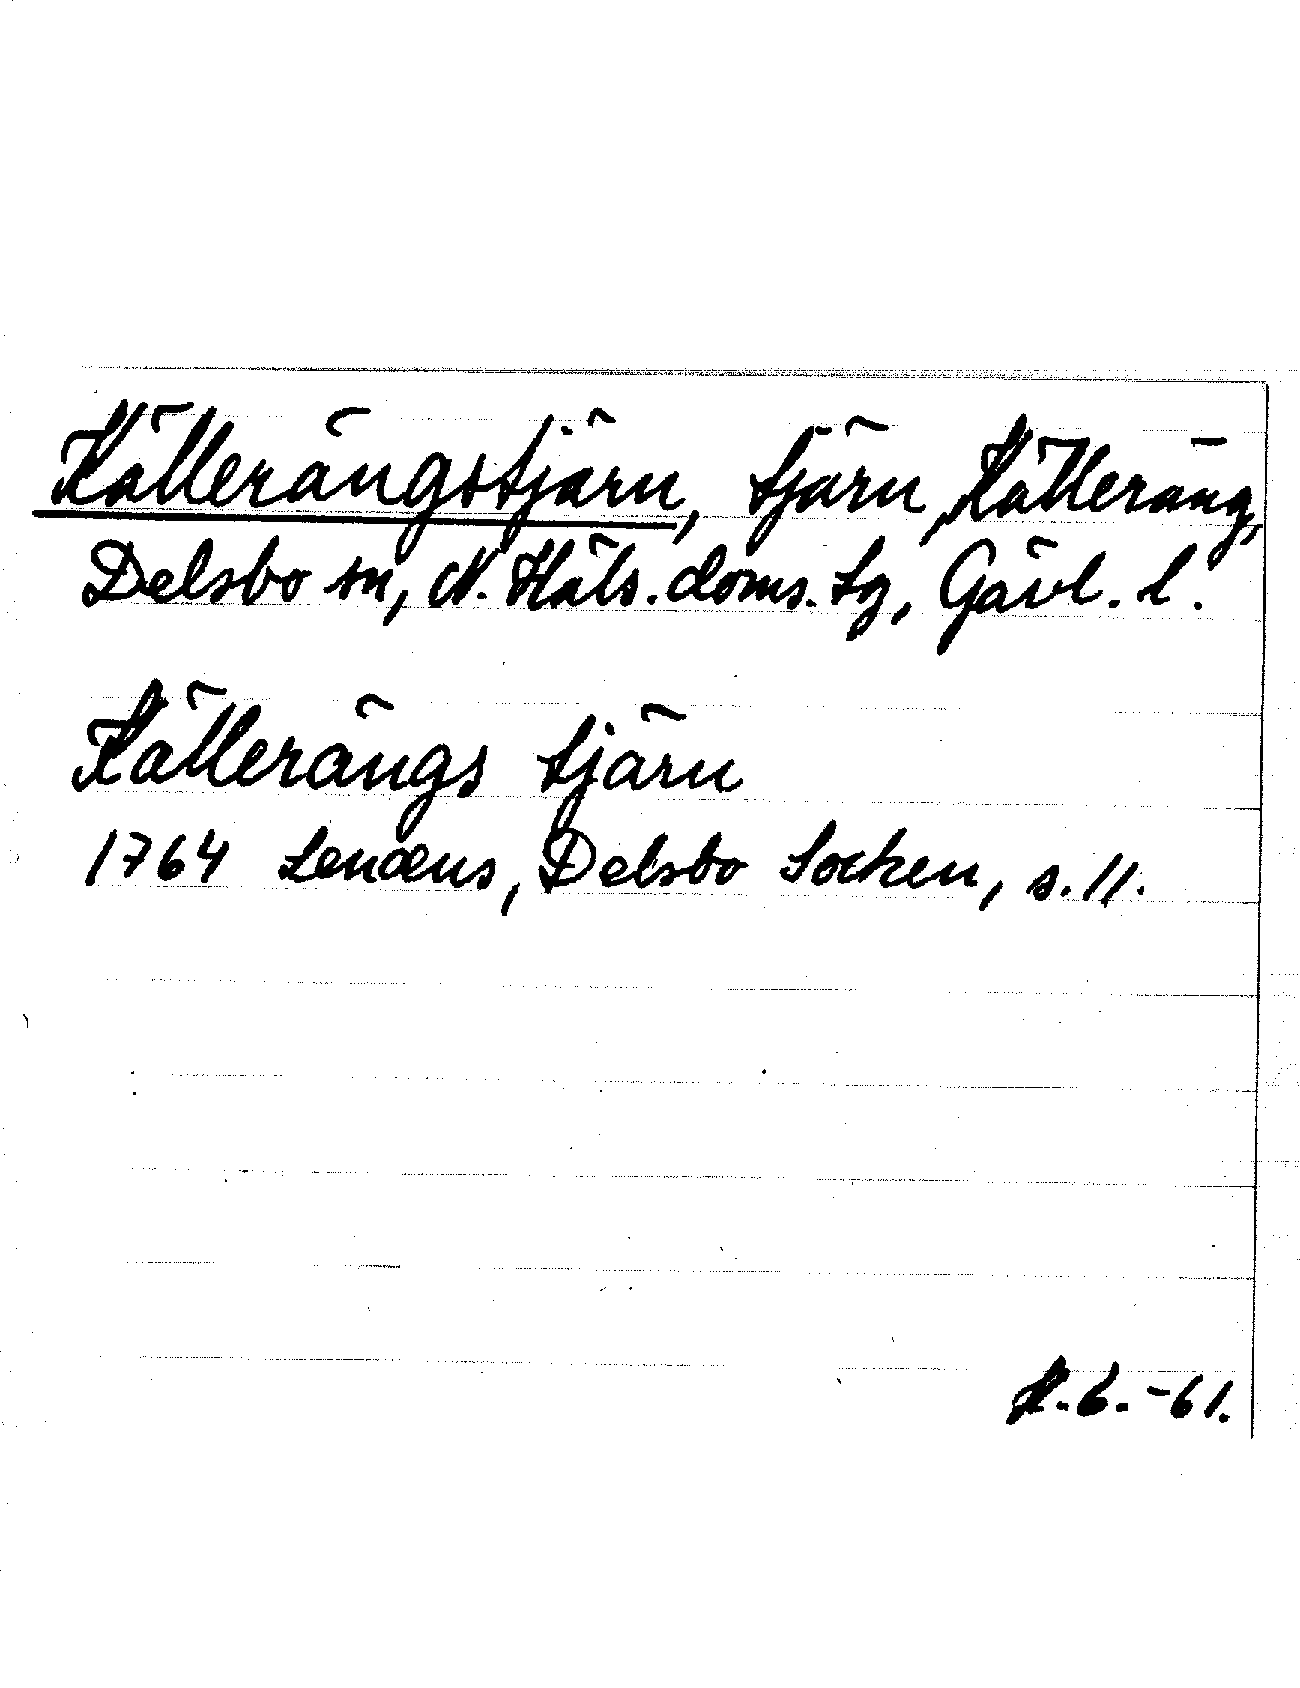 Källerängstjärn, tjärn, Källeräng,
Delsbo sn, N. Häls. doms. tg, Gävl. l.
Källerängs tjärn
1764 Lenæus, Delsbo Socken, s. 11.
K.G. -61.